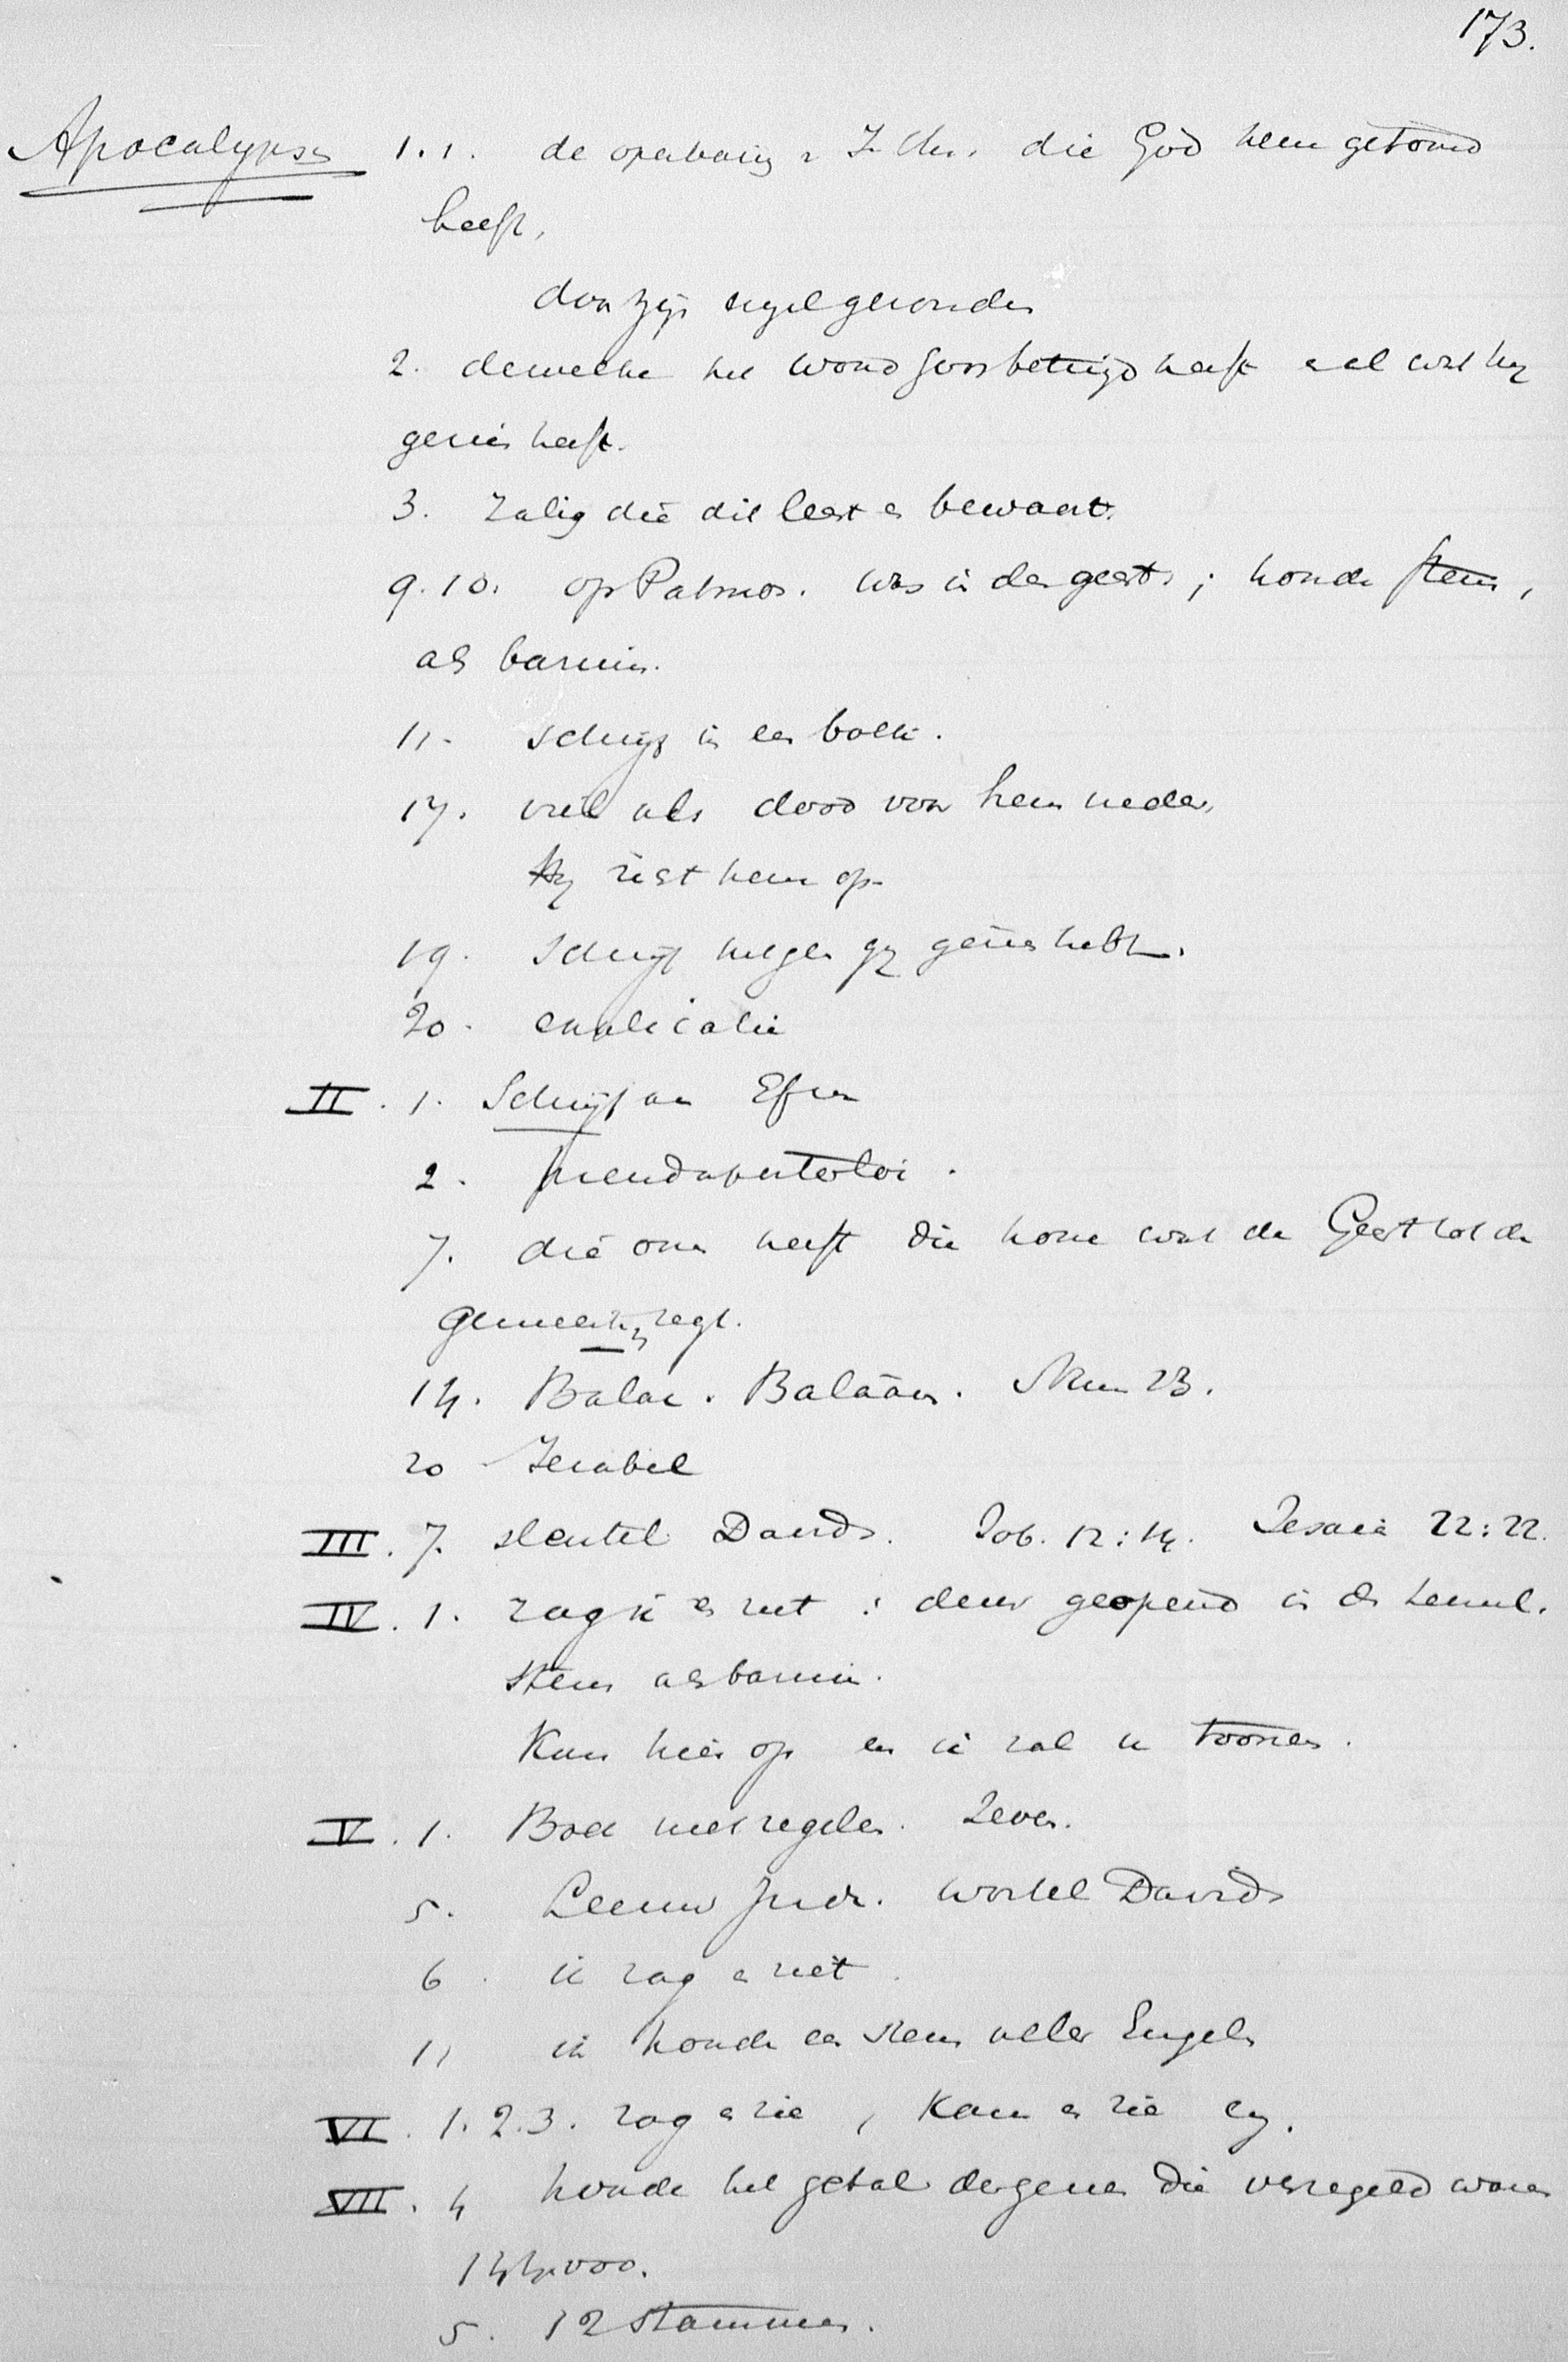 173.
Apocalypse 1.1. de openbaring v J. Chr. die God hem getoond
heeft,
door zijn engel gezonden
2. dewelke het woord Gods betuigd heeft en al wat hij
gezien heeft.
3. Zalig die dit leest en bewaart.
9.10. op Patmos. was in den geest; hoorde stem,
als bazuin.
11. schrijf in een boek.
17. viel als dood voor hem neder,
Hij rigt hem op
19. Schrijf hetgeen gij gezien hebt.
20. explicatie
II. 1. Schrijf aan Efeze
2. pseudapostoloi.
7. die oor heeft die hoore wat de Geest tot de
Gemeenten zegt.
14. Balac. Balaäm. Num 23.
20 Jezabel
III. 7. sleutel Davids. Job. 12:14. Jesaia 22:22.
IV. 1. zag ik en ziet: deur geopend in den hemel.
Stem als bazuin.
Kom hier op en ik zal u toonen.
V. 1. Boek met zegelen. Zeven.
5. Leeuw Juda. wortel Davids
6. ik zag en ziet
11 ik hoorde een stem veler Engelen
VI. 1.2.3. zag en zie, Kom en zie
VII. 4 hoorde het getal dergenen die verzegeld waren
144.000.
5. 12 stammen.